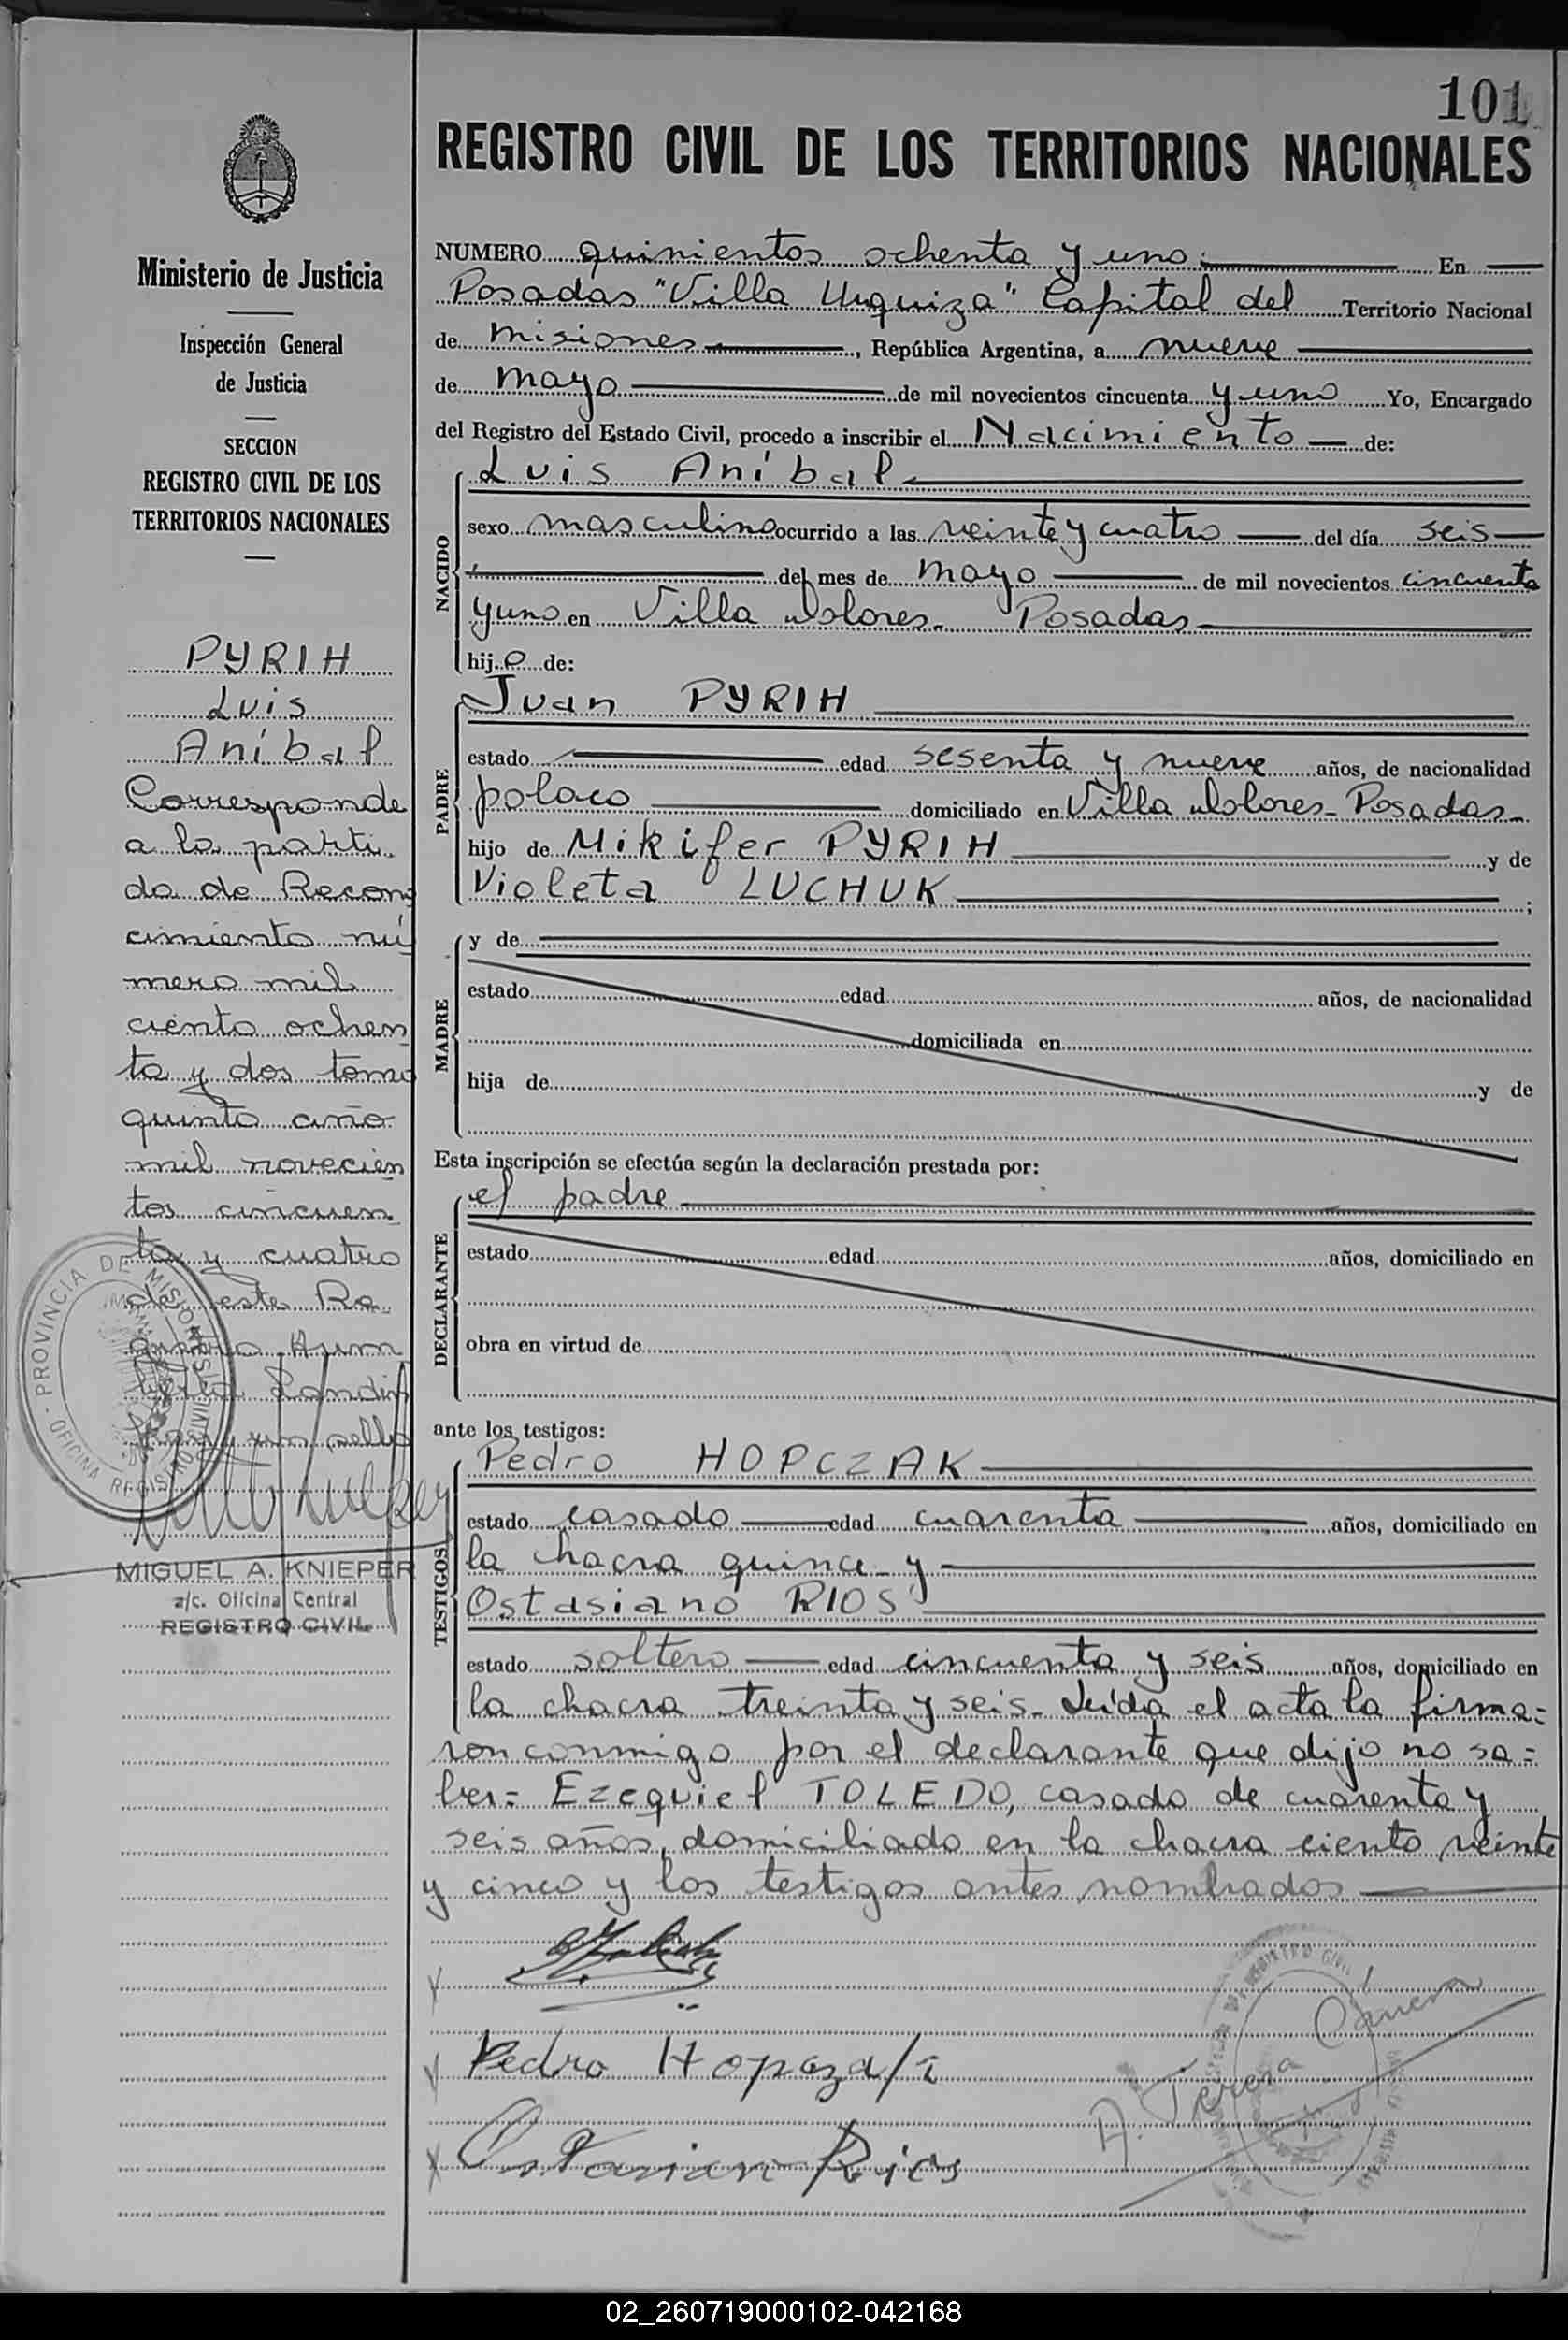 101
REGISTRO CIVIL DE LOS TERRITORIOS NACIONALES
Ministerio de Justicia
Inspección General
de Justicia
SECCION
REGISTRO CIVIL DE LOS
TERRITORIOS NACIONALES
PYRIH
Luis
Aníbal
Corresponde
a la parti-
da de Recono
cimiento nú
mero mil
ciento ochen
ta y dos tomo
quinto año
mil novecien
tos cincuen
ta y cuatro
de este Re-
y un sello
PROVINCIA DE MISIONES
OFICINA REGISTRO CIVIL
MIGUEL A. KNIEPER
a/c. Oficina Central
REGISTRO CIVIL
NUMERO quinientos ochenta y uno. En
Posadas "Villa Urquiza" Capital del Territorio Nacional
de misiones, República Argentina, a nueve
de mayo de mil novecientos cincuenta y uno Yo, Encargado
del Registro del Estado Civil, procedo a inscribir el Nacimiento de:
NACIDO
Luis Aníbal
sexo masculino ocurrido a las veinte y cuatro del día seis
del mes de mayo de mil novecientos cincuenta
y uno en Villa Dolores- Posadas
hijo de:
PADRE
Juan PYRIH
estado edad sesenta y nueve años, de nacionalidad
polaco domiciliado en Villa Dolores- Posadas-
hijo de Mikifer PYRIH y de
Violeta LUCHUK ;
MADRE
y de
estado edad años, de nacionalidad
domiciliada en
hija de y de
Esta inscripción se efectúa según la declaración prestada por:
DECLARANTE
el padre
estado edad años, domiciliado en
obra en virtud de
ante los testigos:
TESTIGOS
Pedro HOPCZAK
estado casado edad cuarenta años, domiciliado en
la chacra quince y
Ostasiano RIOS
estado soltero edad cincuenta y seis años, domiciliado en
la chacra treinta y seis- Leída el acta la firma=
ron conmigo por el declarante que dijo no sa=
ber= Ezequiel TOLEDO, casado de cuarenta y
seis años, domiciliado en la chacra ciento veinte
y cinco y los testigos antes nombrados
Pedro
Rios
A. Teresa
02_260719000102-042168